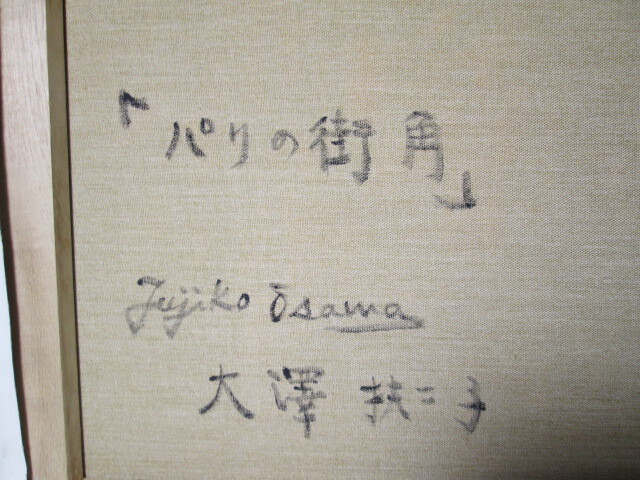 「パリの街角」
Fujiko Ōsawa
大澤 扶二子